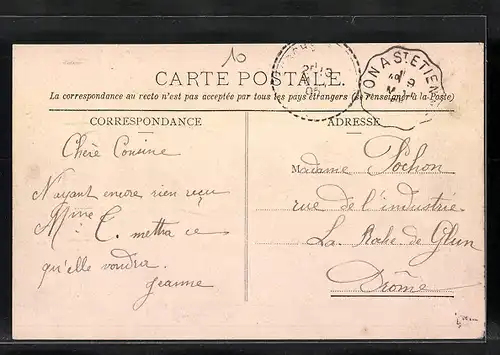 10
CARTE POSTALE.
La correspondance au recto n'est pas acceptée par tous les pays étrangers (Se renseigner à la Poste)
CORRESPONDANCE
Chère Cousine
N'ayant encore rien reçu
Mme C. mettra ce
qu'elle voudra.
Jeanne
ADRESSE
Madame Pochon
rue de l'industrie
La Roche de Glun
Drôme
ON A ST ETIEN